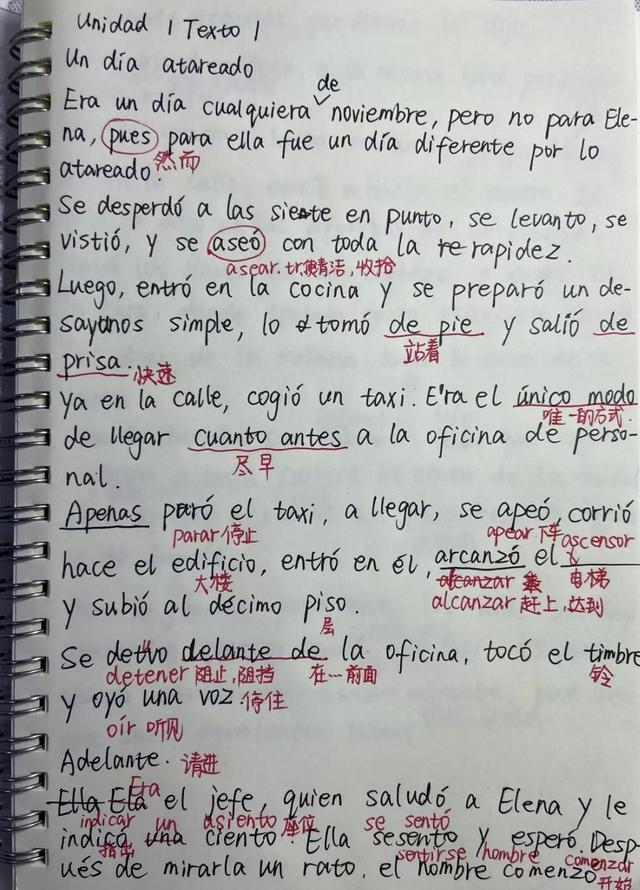 Unidad 1 Texto 1
Un día atareado
de
Era un día cualquiera ∨ noviembre, pero no para Ele-
na, pues para ella fue un día diferente por lo
然而
atareado.
Se desperdó a las siete en punto, se levanto, se
vistió, y se aseó con toda la re rapidez.
asear. tr. 使清洁, 收拾
Luego, entró en la cocina y se preparó un de-
sayunos simple, lo tomó de pie y salió de
站着
prisa. 快速
Ya en la calle, cogió un taxi. Era el único modo
唯一的方式.
de llegar cuanto antes a la oficina de perso-
尽早
nal.
Apenas paró el taxi, a llegar, se apeó, corrió
parar 停止 apear 下车 ascensor
hace el edificio, entró en él, arcanzó el
大楼 alcanzar 电梯
y subió al décimo piso. alcanzar 赶上, 达到
层
Se detuvo delante de la oficina, tocó el timbre
detener 阻止, 阻挡 在…前面 铃
y oyó una voz. 停住
oír 听见
Adelante. 请进
Era
Ella Ela el jefe, quien saludó a Elena y le
indicar un asiento 座位 se sentó
indicó una ciento. Ella sesento y esperó. Desp-
指出 sentirse hombre comenzar
ués de mirarla un rato, el hombre comenzó
开始